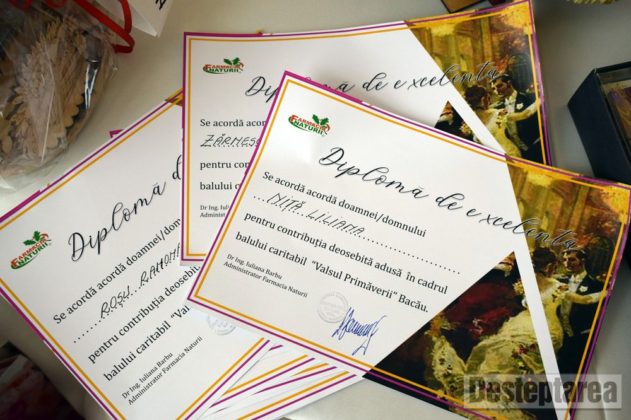 FARMACIA
NATURII
Diplomă de excelenta
Se acordă acordă doamnei/
ZĂRNESC
pentru contribuția deo
balului caritabil
Dr Ing. Iuliana
Administrator
FARMACIA
NATURII
Diplomă de excelenta
Se acordă acordă doamnei/domnului
NIȚĂ LILIANA
pentru contribuția deosebită adusă în cadrul
balului caritabil "Valsul Primăverii" Bacău.
Dr Ing. Iuliana Barbu
Administrator Farmacia Naturii
FARMACIA
NATURII
Diplomă de
Se acordă acordă doamnei/domnului
ROȘU RAMONA
pentru contribuția deosebită
balului caritabil "Va
Dr Ing. Iuliana Barbu
Administrator Farmacia Naturii
Desteptarea